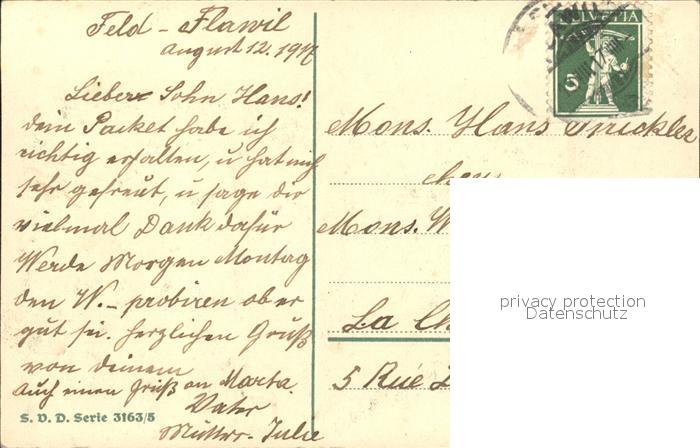 Feld - Flawil
August 12. 1917
Lieber Sohn Hans!
dein Packet habe ich
richtig erhalten, u hat mich
sehr gefreut, u sage dir
vielmal Dank dafür
Werde Morgen Montag
den W.- probiren ob er
gut sei. herzlichen Gruß
von deinem
auch einen Gruß an Marta.
Vater
Mutter. Julie
S. V. D. Serie 3163/5
HELVETIA
5
Mons. Hans
chez
Mons. W
La Ch
5 Rue
privacy protection
Datenschutz